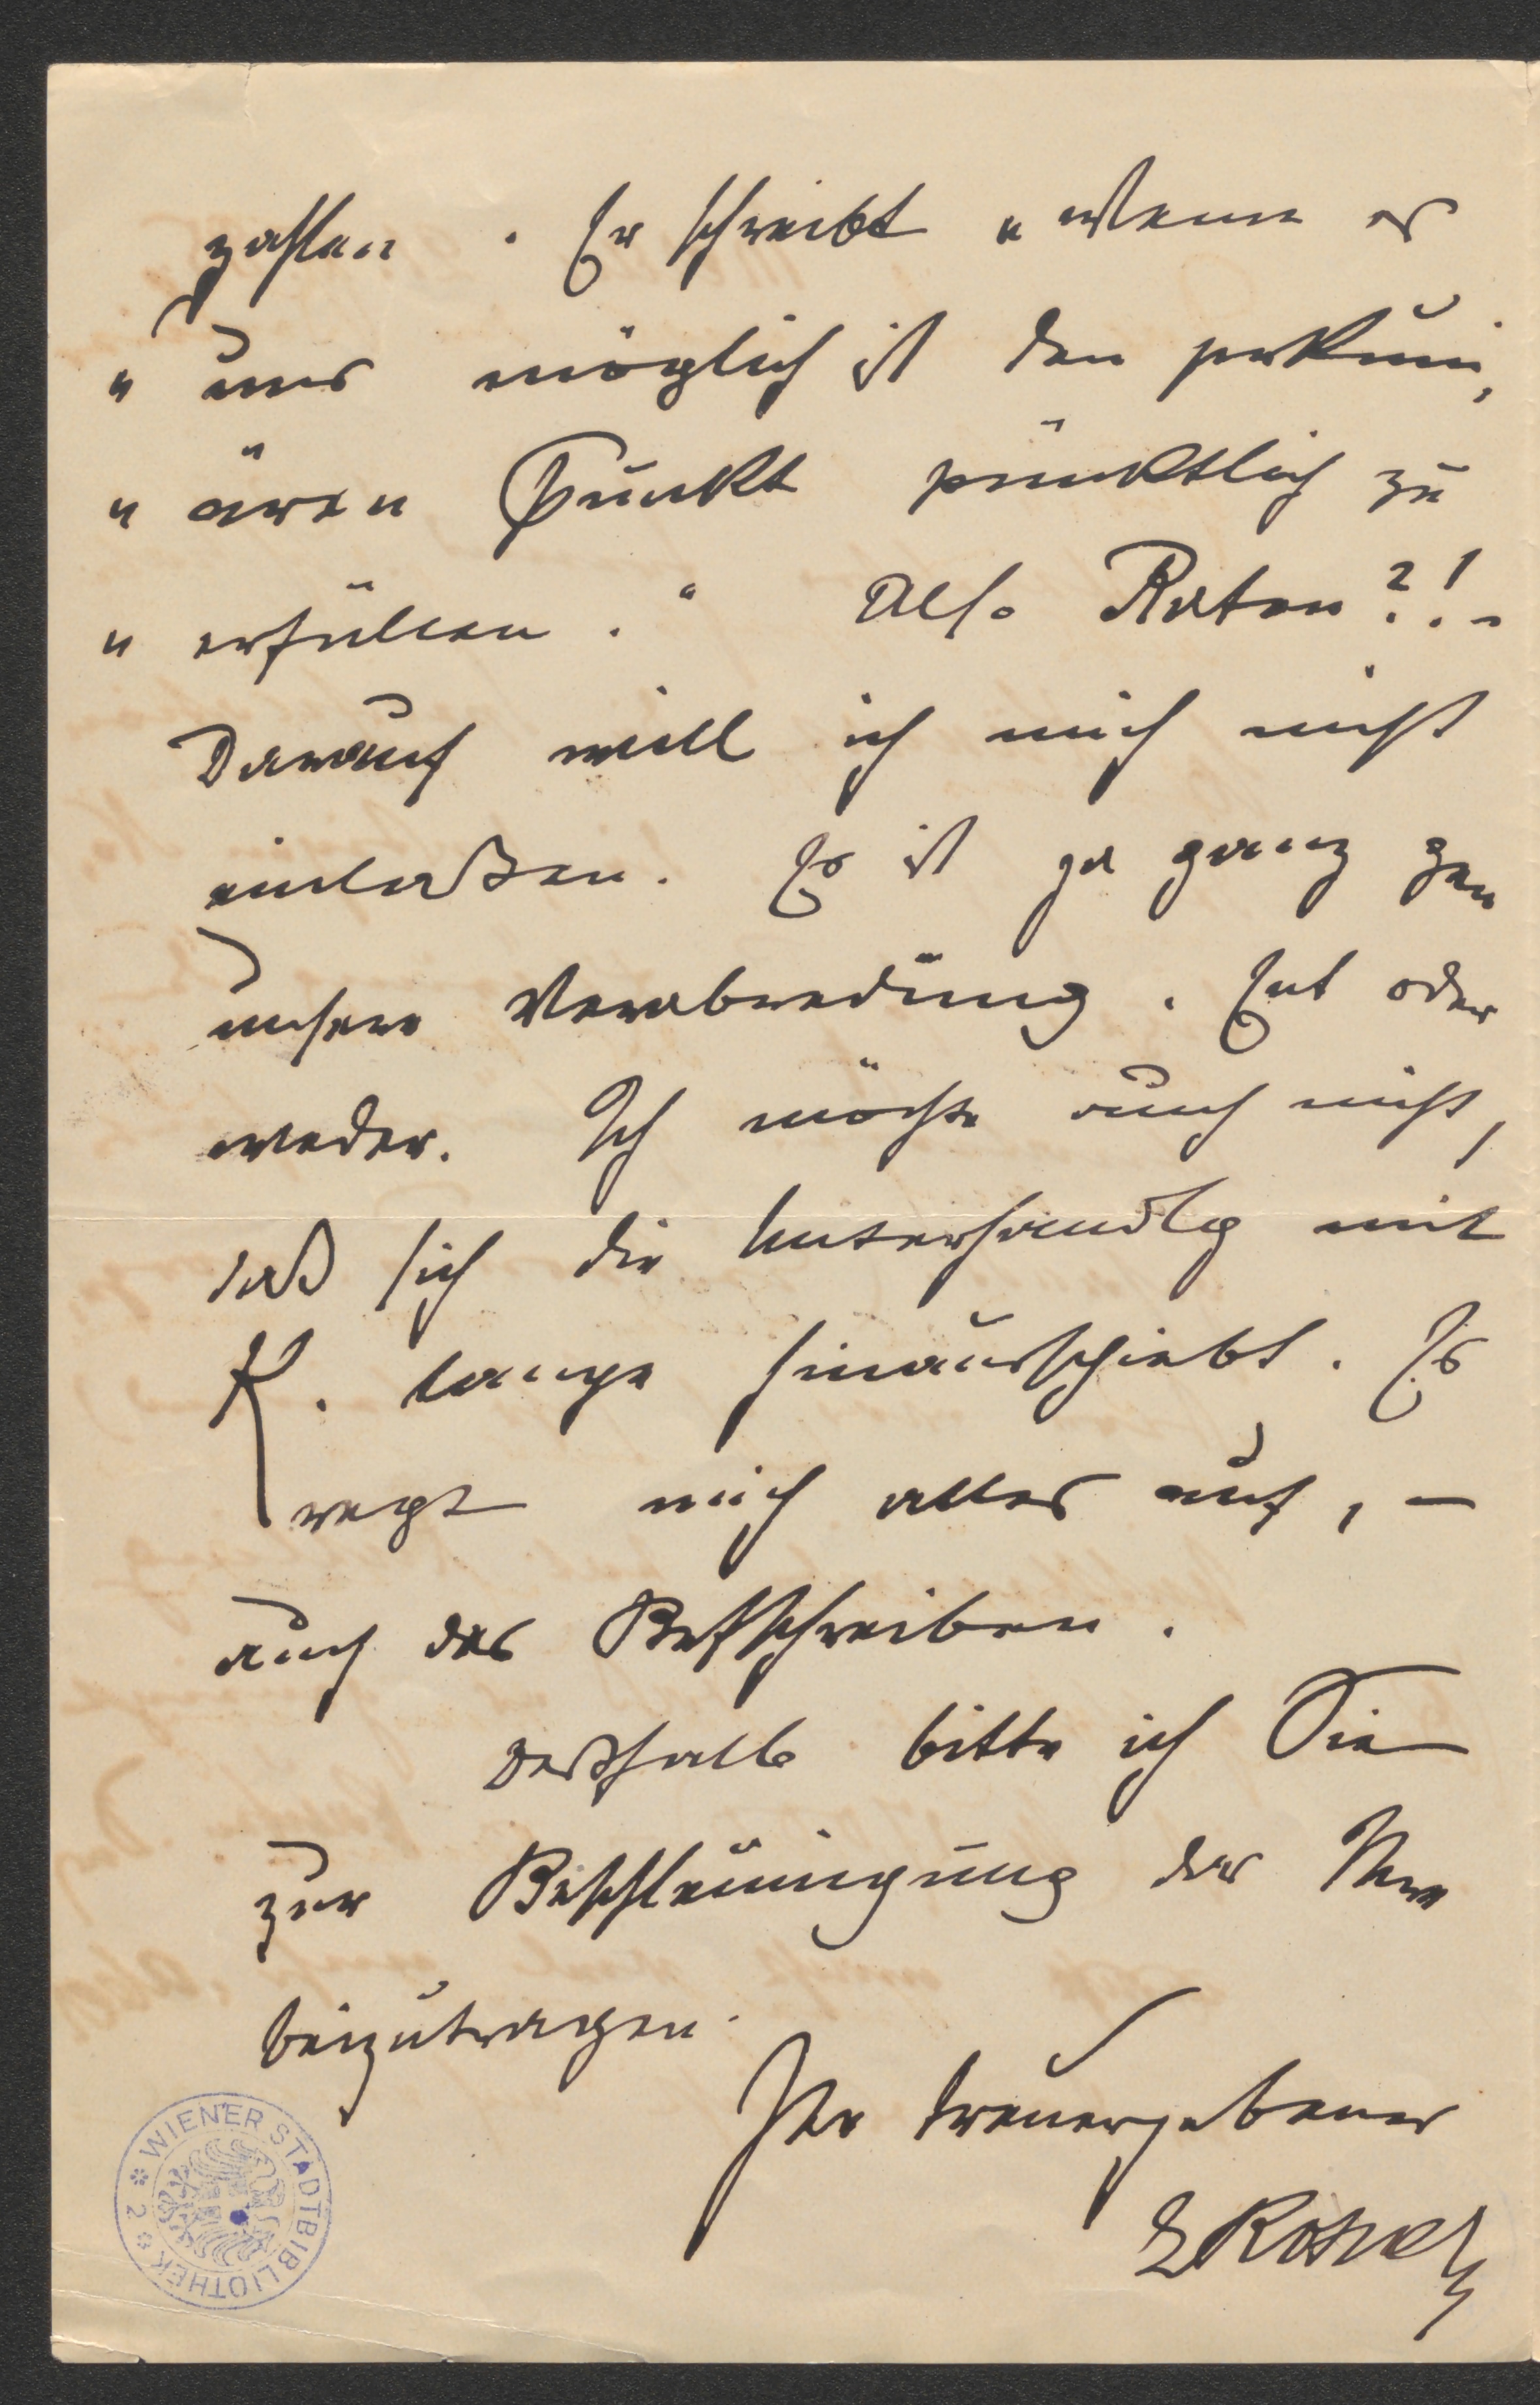 zahlen. Er schreibt „Wenn es
„uns möglich ist den pekuni,
„ären Punkt pünktlich zu
„erfüllen." Also Raten?!-
Darauf will ich mich nicht
einlaßen. Es ist ja ganz gen
unsere Verabredung. Ent oder
weder. Ich möchte auch nicht,
daß sich die Unterhandlg mit
K. lange hinausschiebt. Es
regt mich alles auf, -
auch das Briefschreiben.
Deßhalb bitte ich Sie
zur Beschleunigung der
beizutragen.
Ihr treuergebener
WIENER STADTBIBLIOTHEK
2